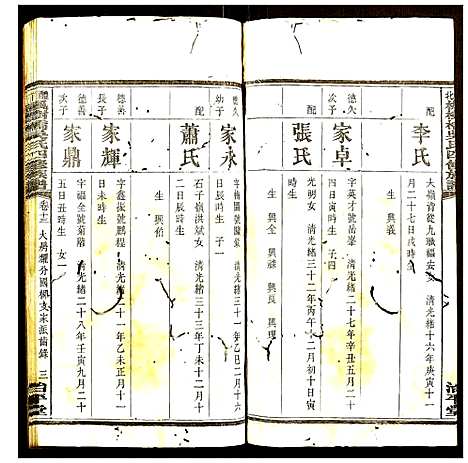 李氏
配
大嶺背從九職福安女 清光緒十六年庚寅十一
月二十七日戌時生
生 興義
家卓
德久
次子
字英才號岳峯 清光緒二十七年辛丑五月二十
日 時生 子四
張氏
配
光明女 清光緒三十二年丙午十二月初十日寅
時生
生 興全 興祿 興長 興現
家永
德久
幼子
字 號國梁 清光緒三十一年 二月十六
日辰時生 子
蕭氏
配
石子嶺洪斌女 清光緒三十三年丁未十二月十
二日辰時生
生 興伯
家輝
德善
長子
字鑫振號鵬程 清光緒二十一年乙未正月十一
日未時生
家鼎
德善
次子
字福全號菊蔭 清光緒二十八年壬寅九月二十
五日丑時生 女二
氏四修族譜
卷十三 大房耀分國柳支宋派齒錄 三